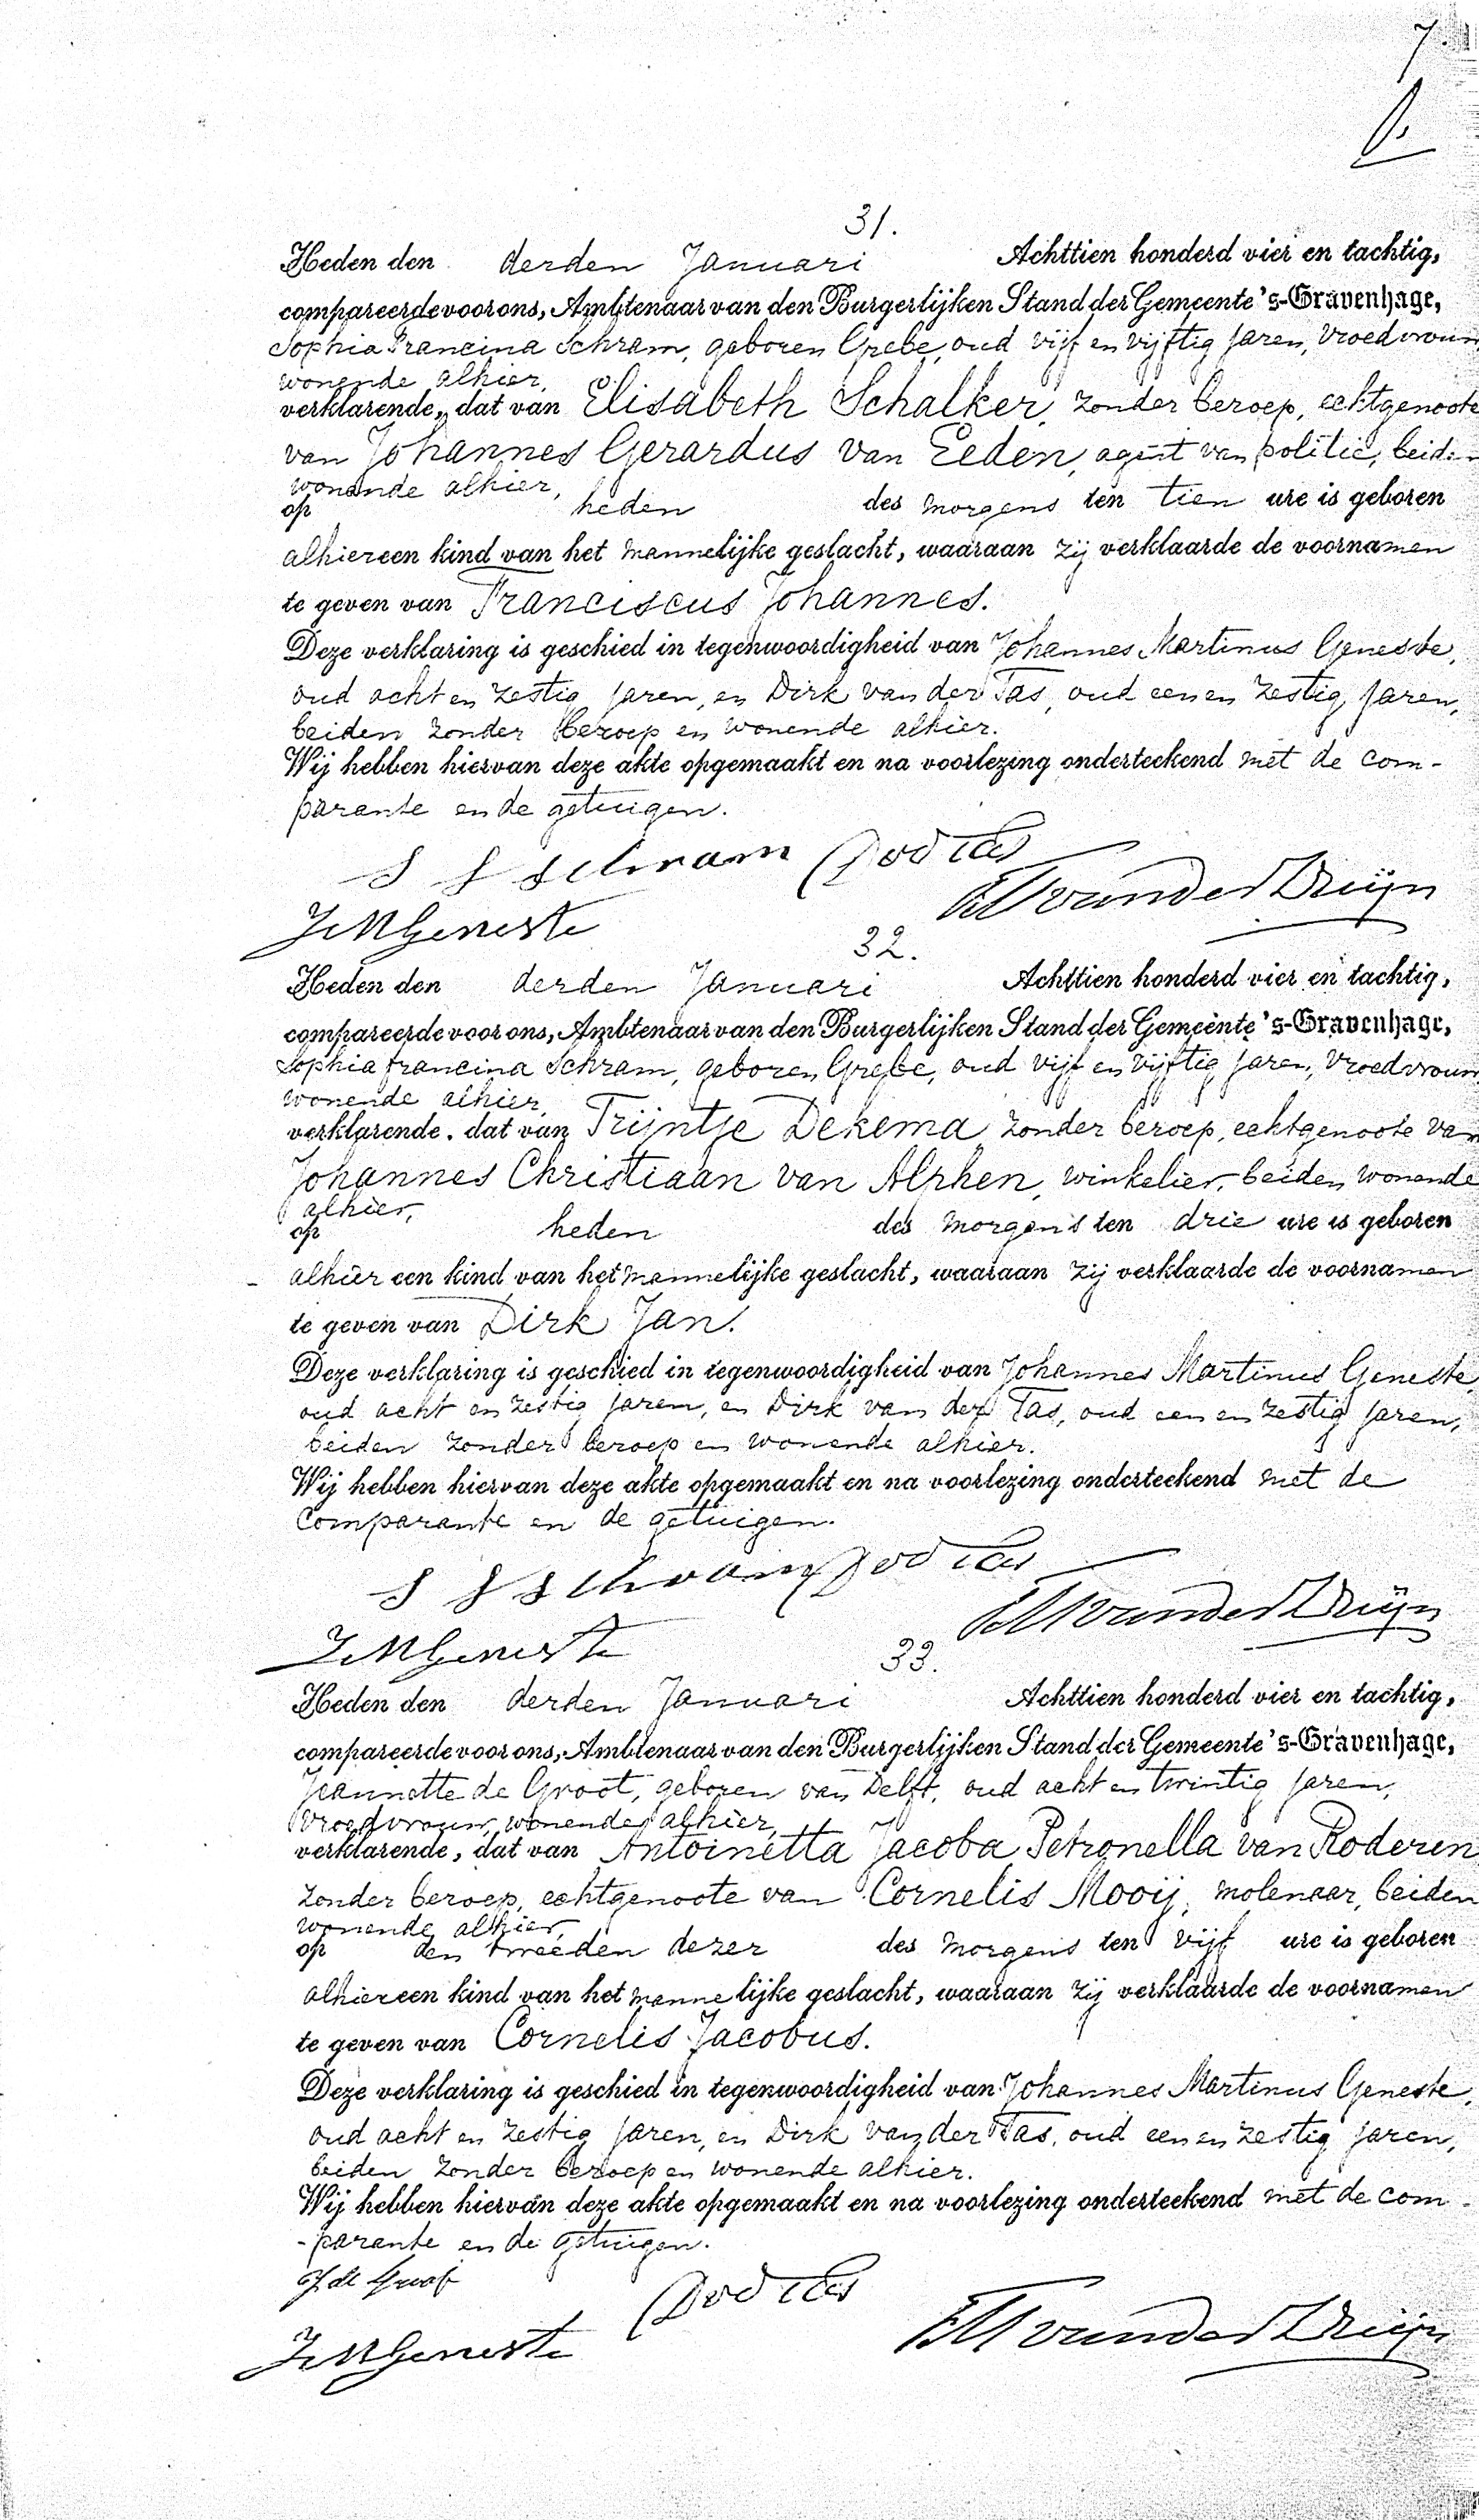 7.
31.
Heden den derden Januari Achttien honderd vier en tachtig,
compareerde voor ons, Ambtenaar van den Burgerlijken Stand der Gemeente 's-Gravenhage,
Sophia Francina Schram, geboren Grebe, oud vijf en vijftig jaren, vroedvrouw
wonende alhier,
verklarende, dat van Elisabeth Schalker, zonder beroep, echtgenoote
van Johannes Gerardus van Eeden, agent van politie, beiden
wonende alhier,
op heden des morgens ten tien ure is geboren
alhier een kind van het mannelijke geslacht, waaraan zij verklaarde de voornamen
te geven van Franciscus Johannes.
Deze verklaring is geschied in tegenwoordigheid van Johannes Martinus Geneste,
oud acht en zestig jaren, en Dirk van der Tas, oud een en zestig jaren,
beiden zonder beroep en wonende alhier.
Wij hebben hiervan deze akte opgemaakt en na voorlezing onderteekend met de com-
parante en de getuigen.
S F Schram D v d Tas
van der Druijn
J M Geneste
32.
Heden den derden Januari Achttien honderd vier en tachtig,
compareerde voor ons, Ambtenaar van den Burgerlijken Stand der Gemeente 's-Gravenhage,
Sophia francina Schram, geboren Grebe, oud vijf en vijftig jaren, vroedvrouw
wonende alhier,
verklarende, dat van Trijntje Dekema, zonder beroep, echtgenoote van
Johannes Christiaan van Alphen, winkelier, beiden wonende
alhier,
op heden des morgens ten drie ure is geboren
alhier een kind van het mannelijke geslacht, waaraan zij verklaarde de voornamen
te geven van Dirk Jan.
Deze verklaring is geschied in tegenwoordigheid van Johannes Martinus Geneste,
oud acht en zestig jaren, en Dirk van der Tas, oud een en zestig jaren,
beiden zonder beroep en wonende alhier.
Wij hebben hiervan deze akte opgemaakt en na voorlezing onderteekend met de
Comparante en de getuigen.
S F Schram D v d Tas
van der Druijn
J M Geneste
33.
Heden den derden Januari Achttien honderd vier en tachtig,
compareerde voor ons, Ambtenaar van den Burgerlijken Stand der Gemeente 's-Gravenhage,
Jeannette de Groot, geboren van Delft, oud acht en twintig jaren,
vroedvrouw, wonende alhier,
verklarende, dat van Antoinetta Jacoba Petronella van Roderen
zonder beroep, echtgenoote van Cornelis Mooij, molenaar, beiden
wonende alhier,
op den tweeden dezer des morgens ten vijf ure is geboren
alhier een kind van het mannelijke geslacht, waaraan zij verklaarde de voornamen
te geven van Cornelis Jacobus.
Deze verklaring is geschied in tegenwoordigheid van Johannes Martinus Geneste,
oud acht en zestig jaren, en Dirk van der Tas, oud een en zestig jaren,
beiden zonder beroep en wonende alhier.
Wij hebben hiervan deze akte opgemaakt en na voorlezing onderteekend met de com-
-parante en de getuigen.
J de Groot
D v d Tas
van der Druijn
J M Geneste